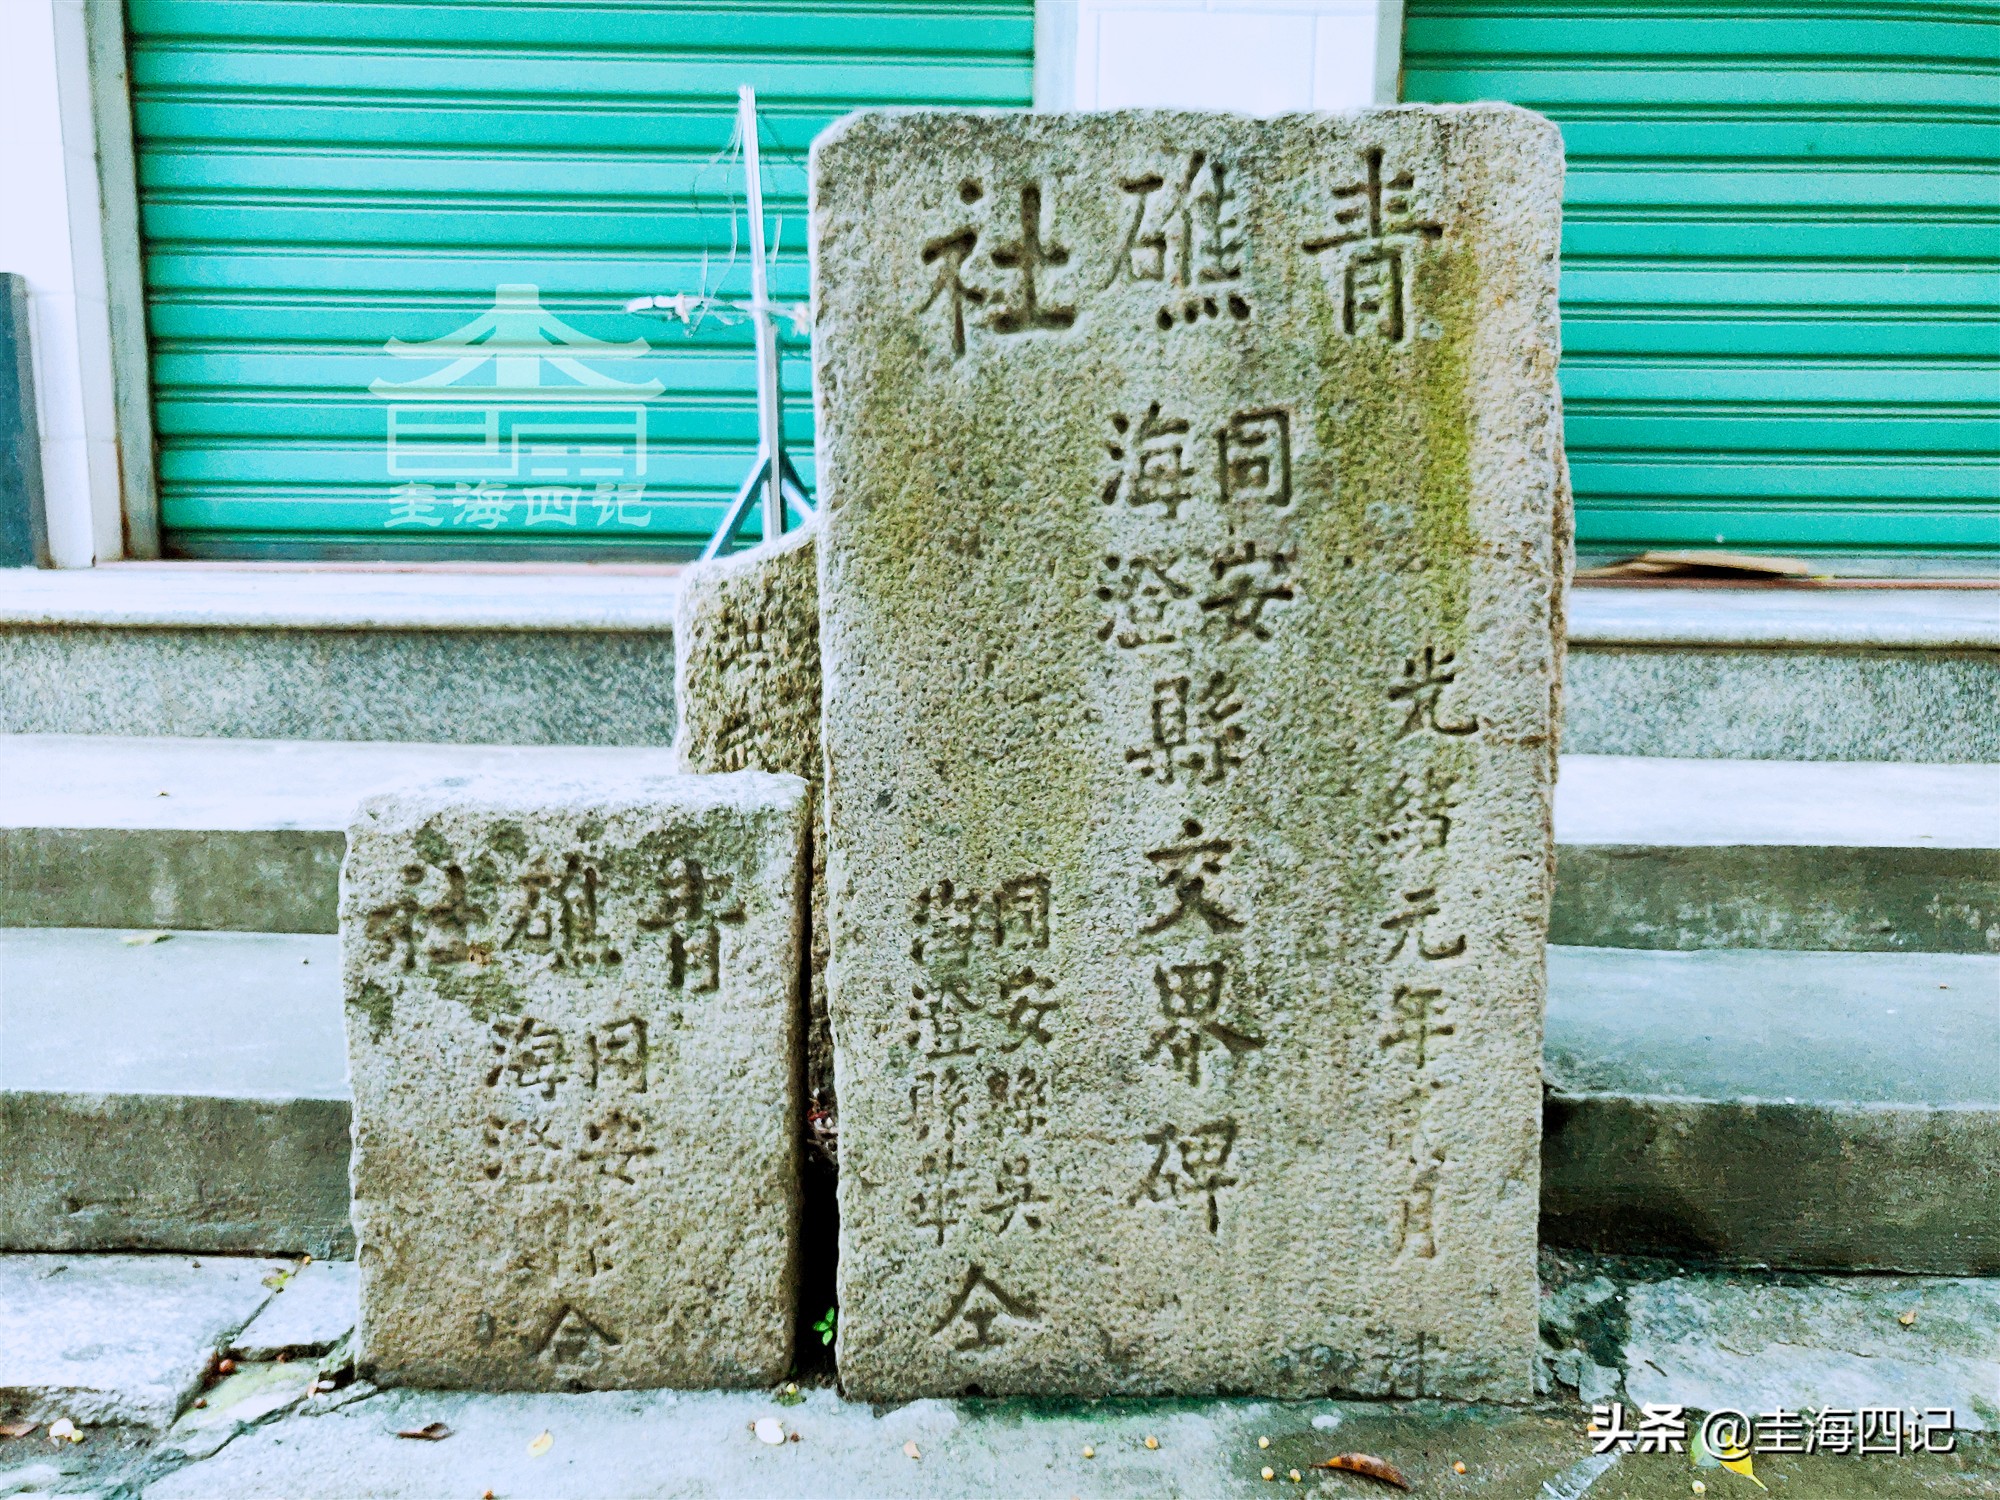 青礁社
光緒元年
同安
海澄
縣交界碑
同安縣吳
海澄縣
仝
青礁社
同安
海澄
洪
圭海四记
头条 @圭海四记